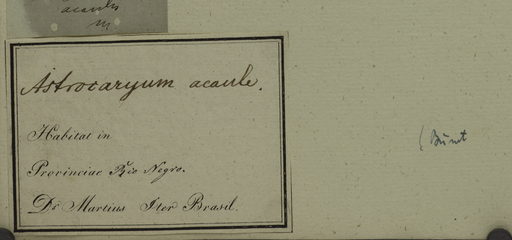 acaulis
m
Astrocaryum acaule.
Habitat in
Provinciae Rio Negro.
Dr Martius Iter Brasil.